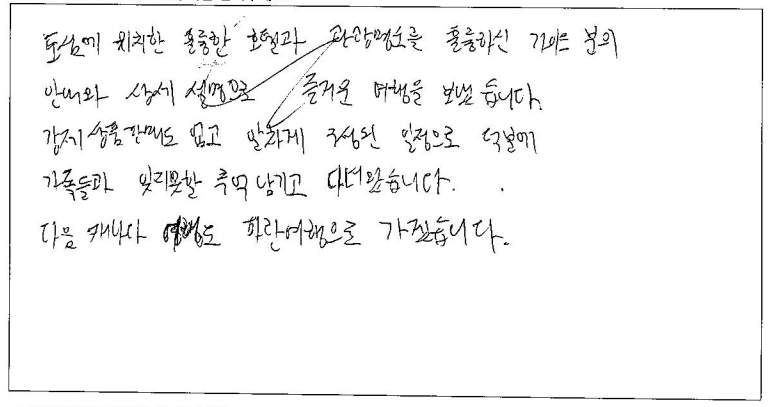 도심에 위치한 훌륭한 호텔과 관광명소를 훌륭하신 가이드 분의
안내와 상세 설명으로 즐거운 여행을 보냈습니다.
강제 상품판매도 없고 알차게 구성된 일정으로 덕분에
가족들과 잊지못할 추억 남기고 다녀왔습니다.
다음 캐나다 여행도 파란여행으로 가겠습니다.